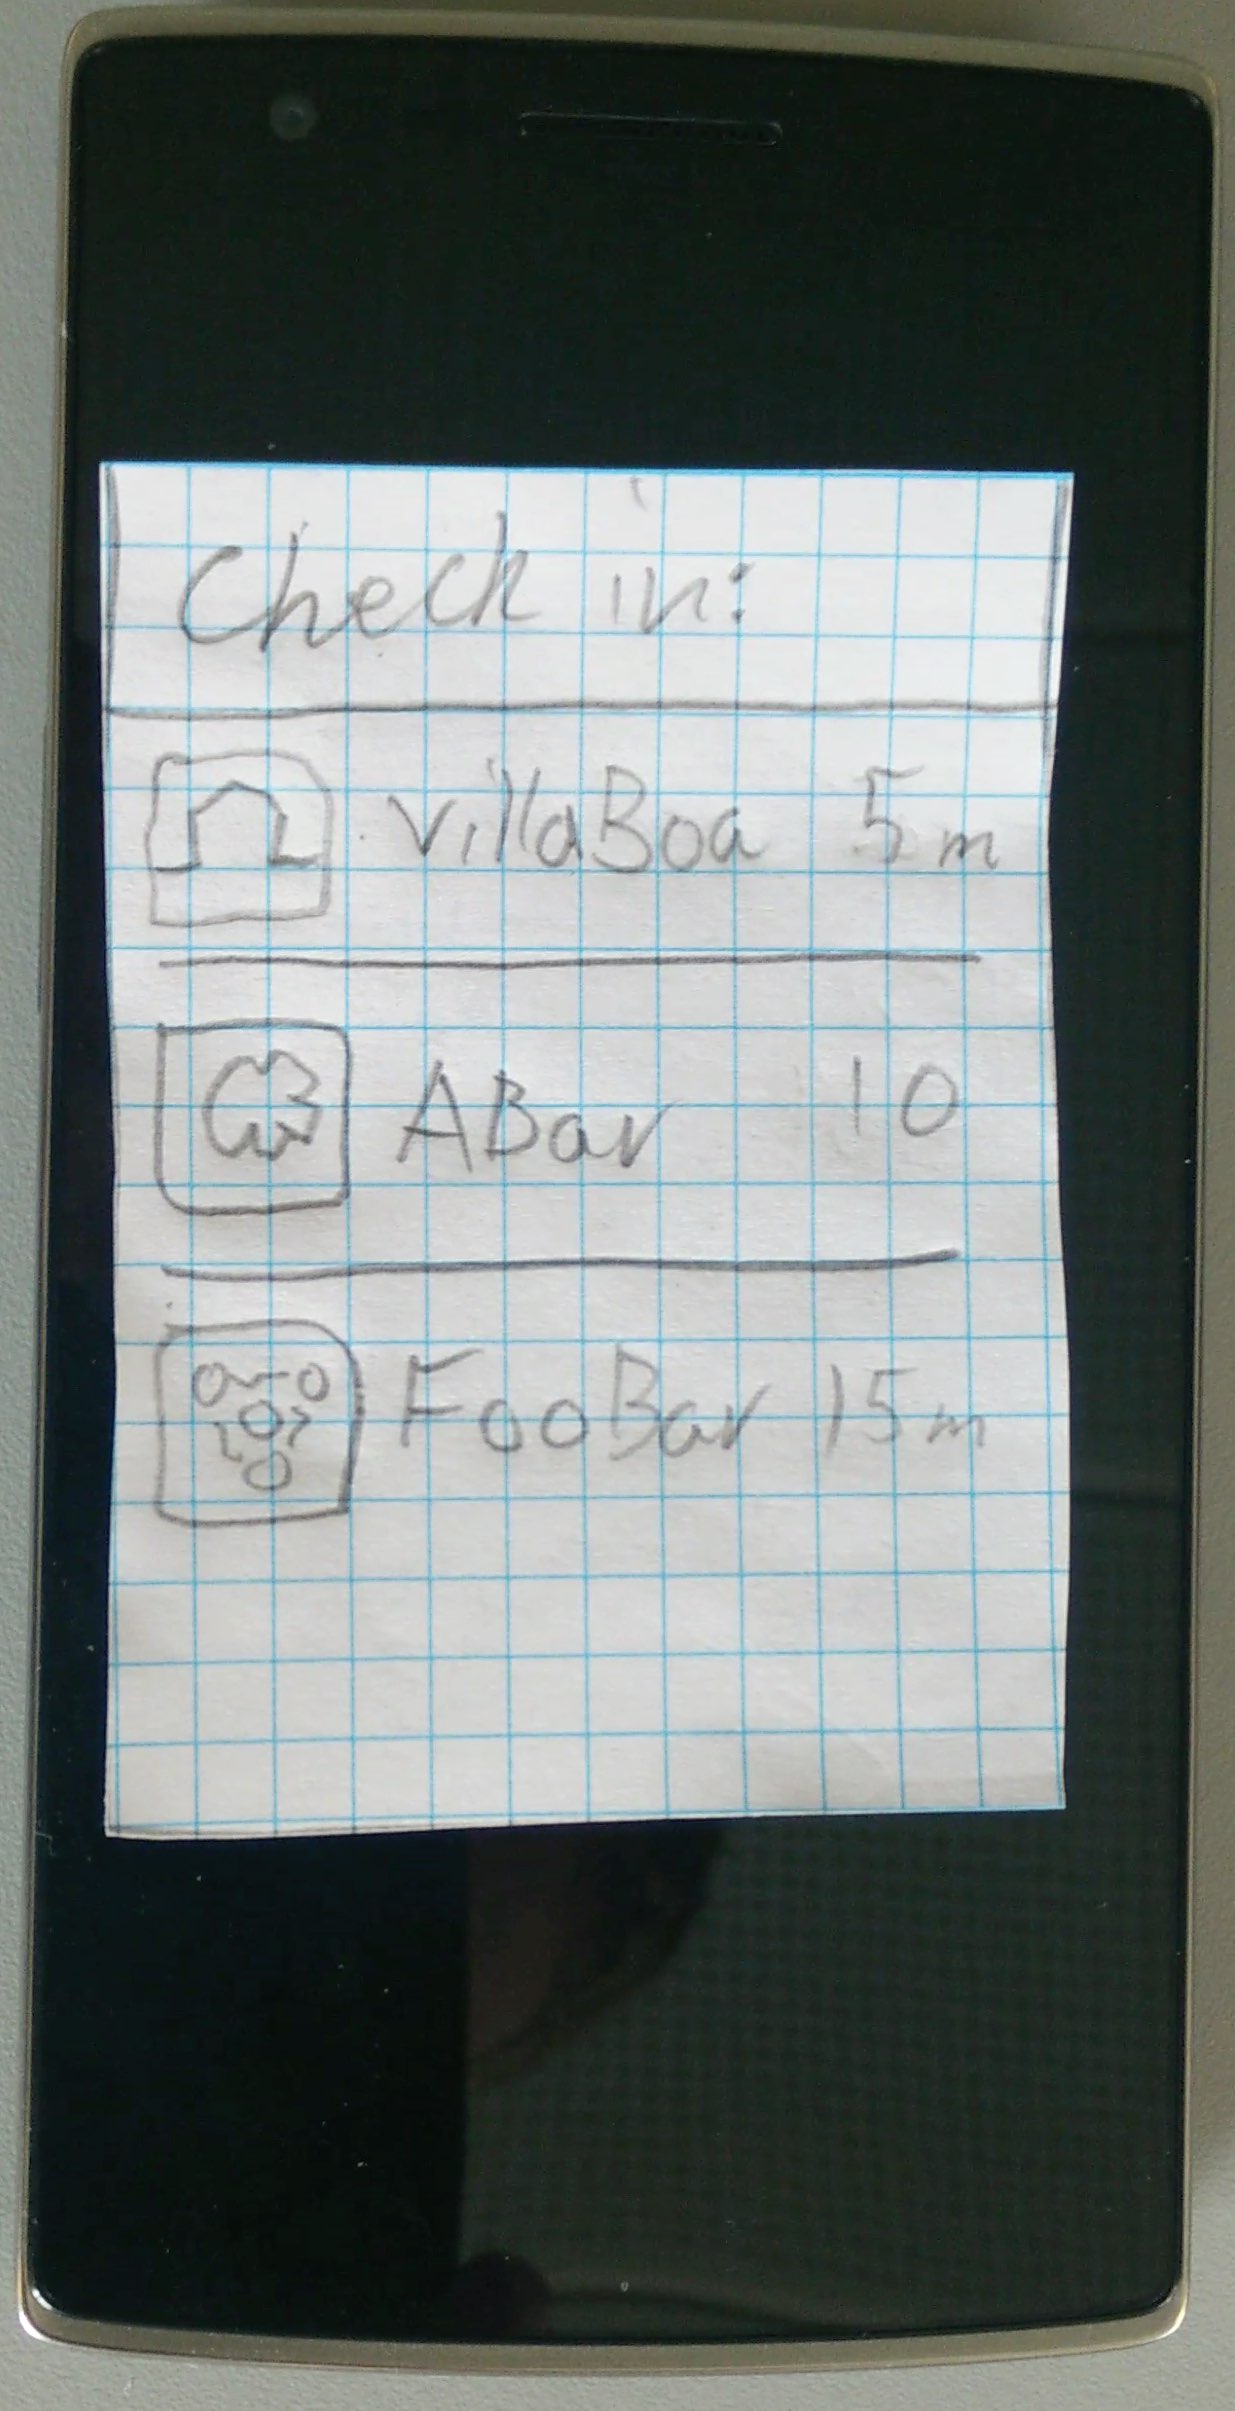 Check in:
VillaBoa 5m
ABar 10
FooBar 15m